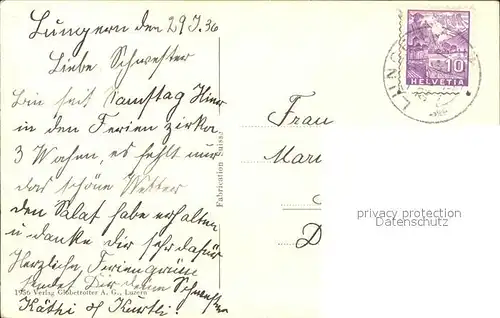 Lungern den 29 J. 36
Liebe Schwester
bin seit Samstag Hier
in den Ferien zirka
3 Wochen, es fehlt nur
das schöne Wetter
den Salat habe erhalten
u danke dir sehr dafür
Herzliche Feriengrüsse
sendet Dir deine Schwester
Käthi & Kurtli.
1956 Verlag Globetrotter A. G., Luzern
Fabrication Suisse
Frau
Mari
D
privacy protection
Datenschutz
10
HELVETIA
LUNG